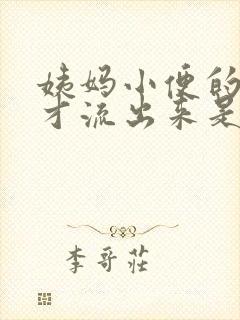 姨妈小便的
才流出来是
李哥莊